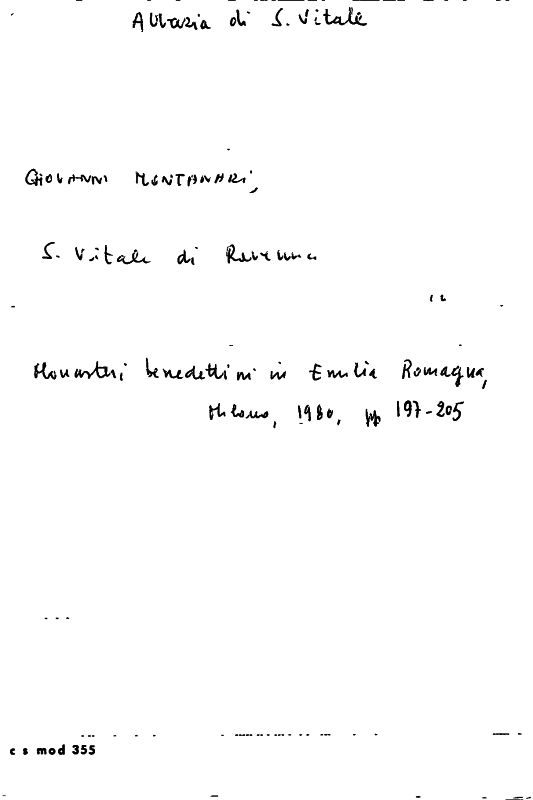 Abbazia di S. Vitale
GIOVANNI MONTANARI,
S. Vitale di Ravenna
in
Monasteri benedettini in Emilia Romagna,
Milano, 1980, pp 197-205
c s mod 355